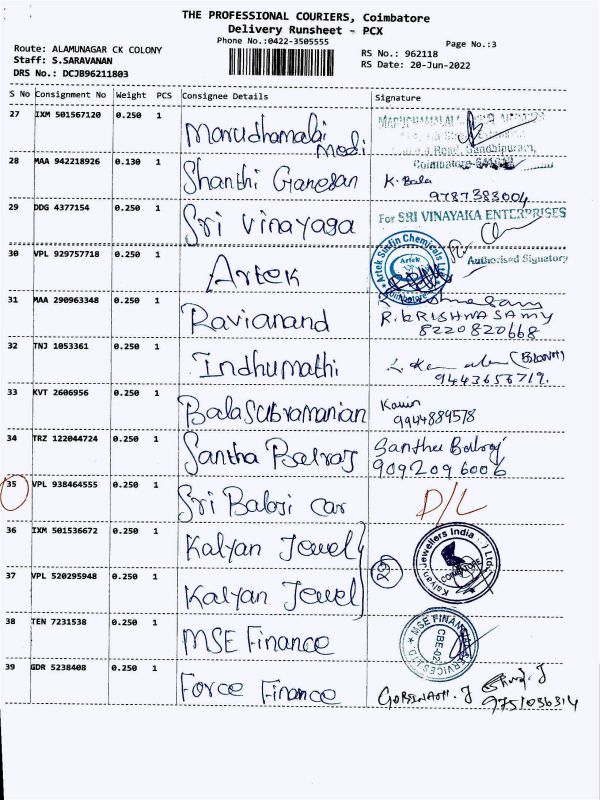 THE PROFESSIONAL COURIERS, Coimbatore
Delivery Runsheet - PCX
Phone No.:0422-3505555
Page No.:3
Route: ALAMUNAGAR CK COLONY
Staff: S.SARAVANAN
DRS No.: DCJB96211803
RS No.: 962118
RS Date: 20-Jun-2022
S No Consignment No Weight PCS Consignee Details Signature
27 IXM 501567120 0.250 1 Marudhamalai Medi
Gandhipuram,
Coimbatore-641012
28 MAA 942218926 0.130 1 Shanthi Ganesan K. Bala
9787383004
29 DDG 4377154 0.250 1 Sri Vinayaga For SRI VINAYAKA ENTERPRISES
Authorised Signatory
30 VPL 929757718 0.250 1 Artek Artek Surfin Chemicals Ltd. Artek Coimbatore
31 MAA 290963348 0.250 1 Ravianand R. KRISHNASAMY
8220820668
32 TNJ 1053361 0.250 1 Indhumathi
9443656719.
33 KVT 2606956 0.250 1 Balasubramanian Kavin
9944889578
34 TRZ 122044724 0.250 1 Santha Balraj Santha Balraj
9092096006
35 VPL 938464555 0.250 1 Sri Balaji Car D/L
36 IXM 501536672 0.250 1 Kalyan Jewel Kalyan Jewellers India Ltd. COIMBATORE
37 VPL 520295948 0.250 1 Kalyan Jewel
38 TEN 7231538 0.250 1 MSE Finance MSE FINANCIAL SERVICES LTD. CBE-02
39 GDR 5238408 0.250 1 Force Finance GOPINATH. J
9751036314